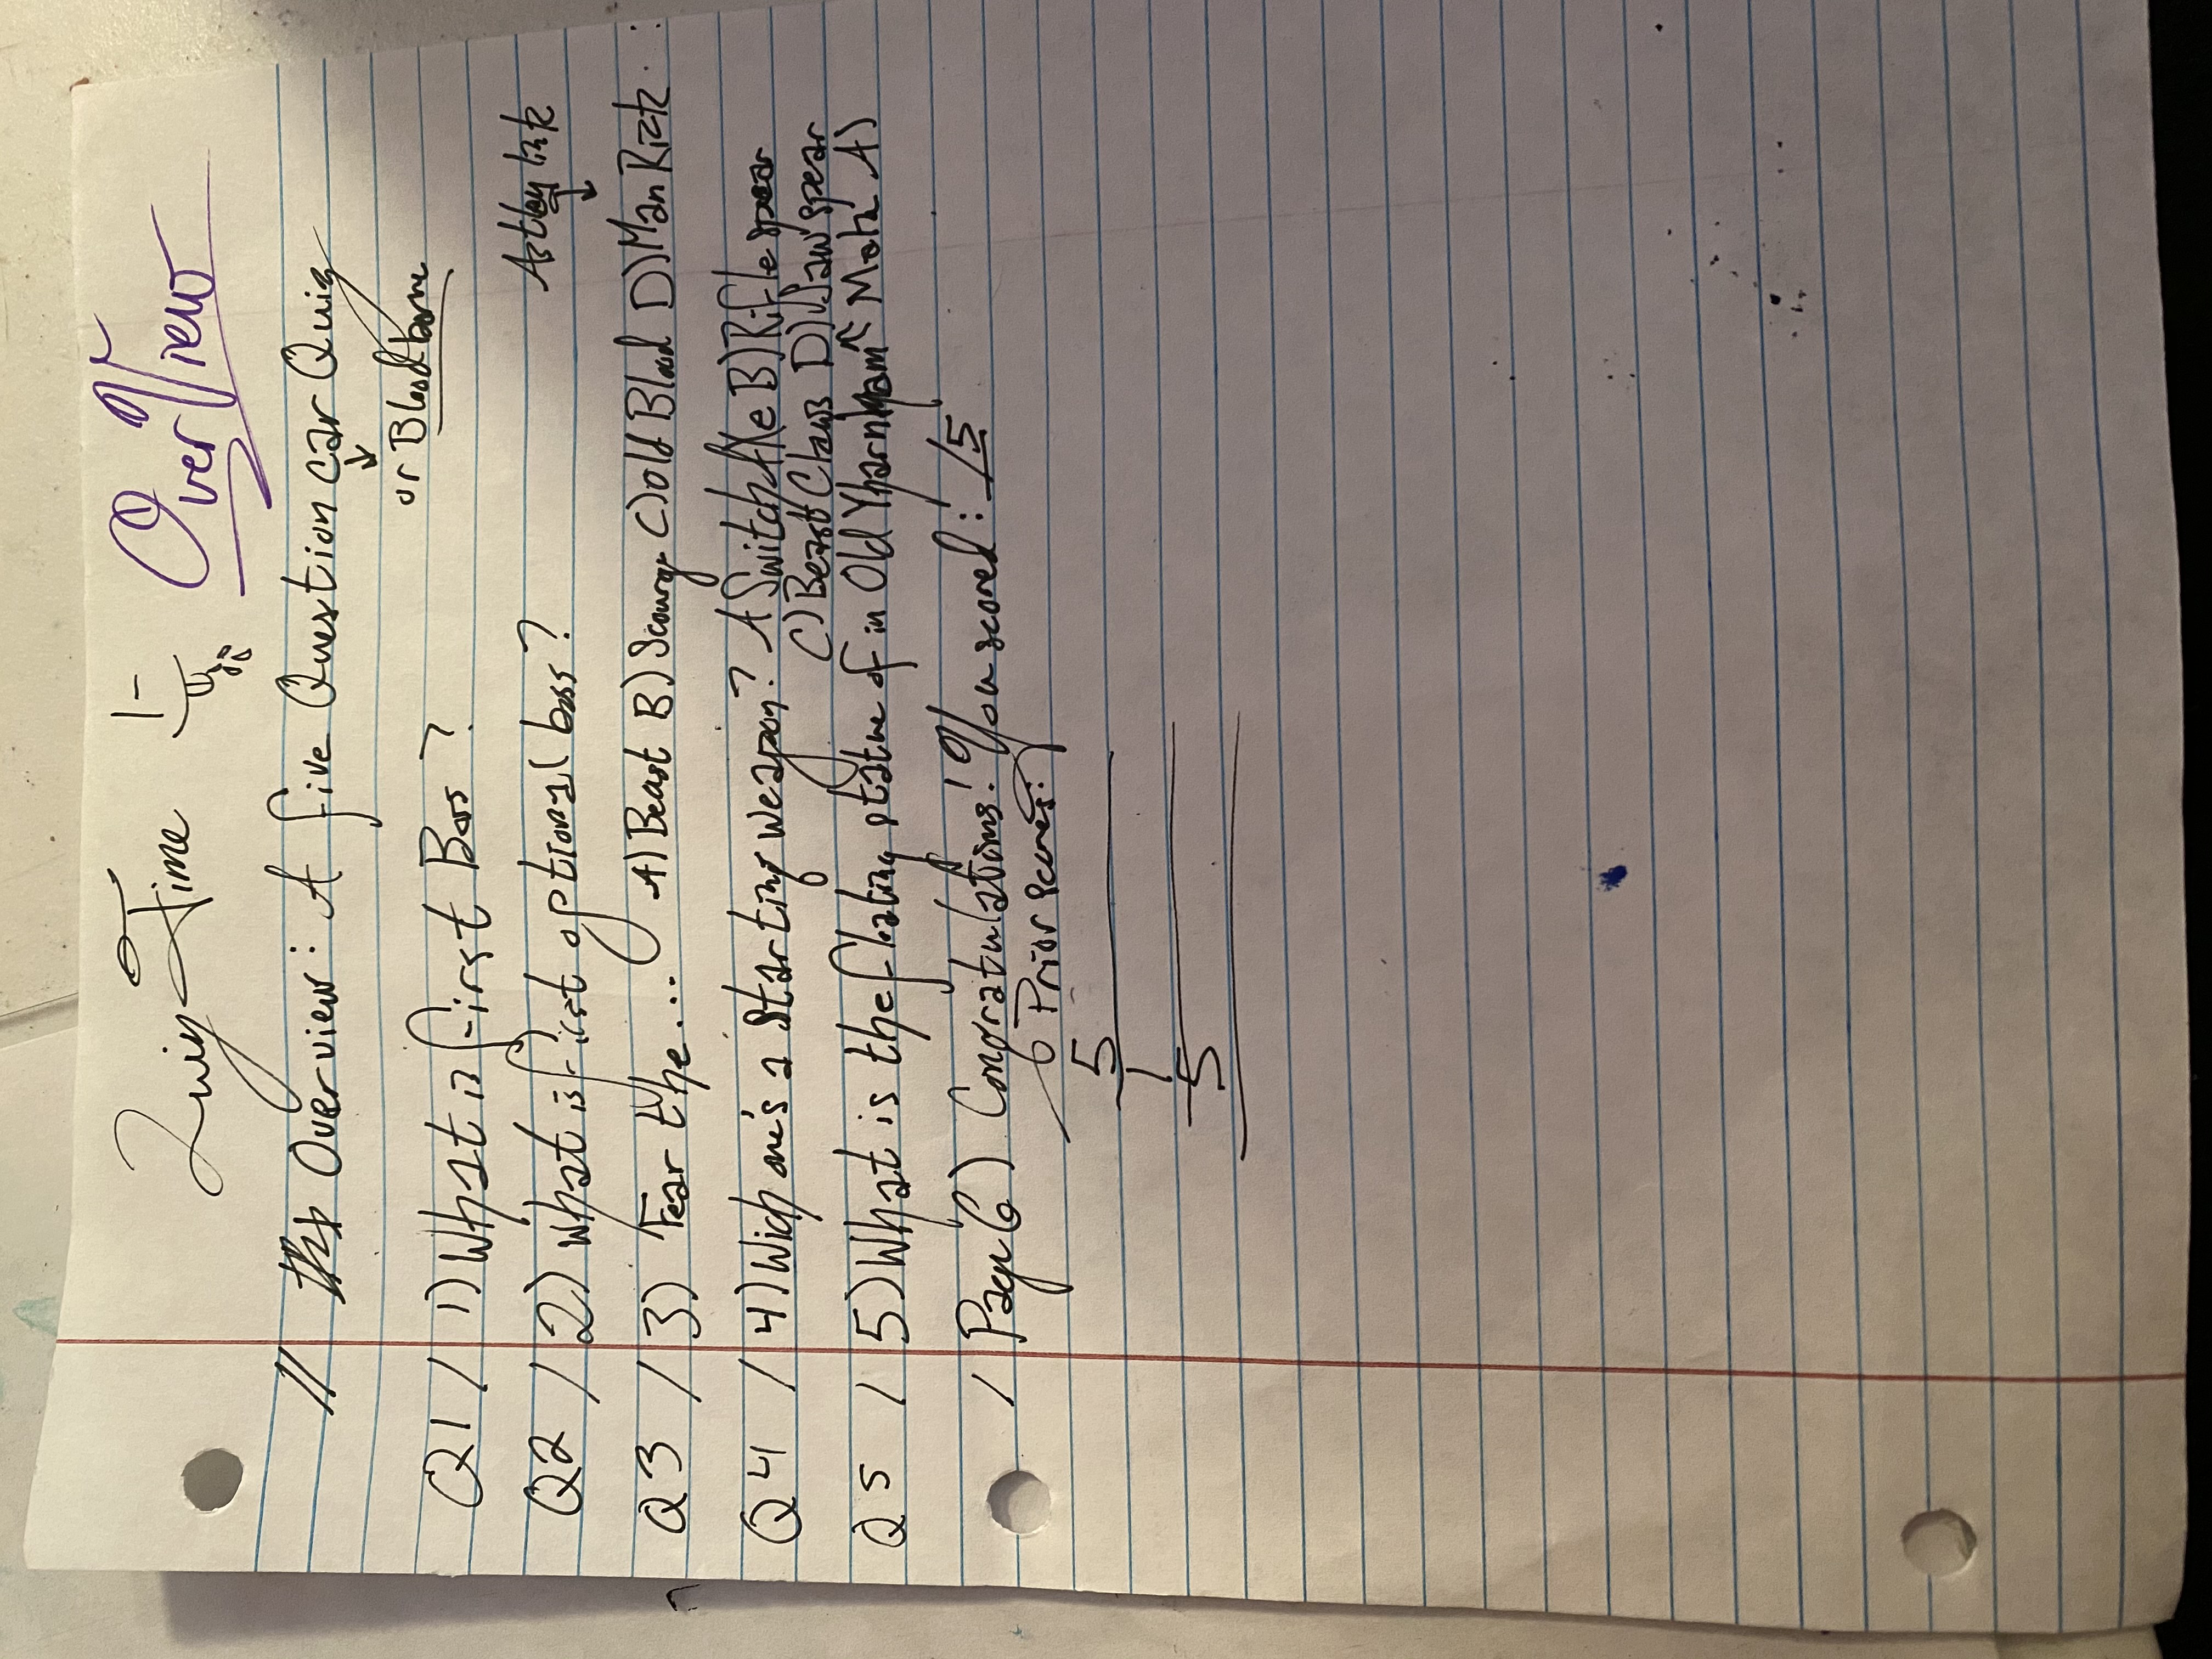 Quiz Time OverView
// Overview: A five Question car Quiz
or Bloodborne
Q1 / 1) What is first Boss?
Q2 / 2) what is first optional boss?
Astley link
Q3 / 3) Fear the... A) Beast B) Scourge C) Old Blood D) Man Rick
Q4 / 4) Wich one's a starting weapon? A Switch Axe B) Rifle spear
C) Beast Claws D) Saw spear
Q5 / 5) What is the floating statue of in Old Yharnham A)
/ Page 6) Congratulations! You scored: /5
Prior scores:
5
1
5